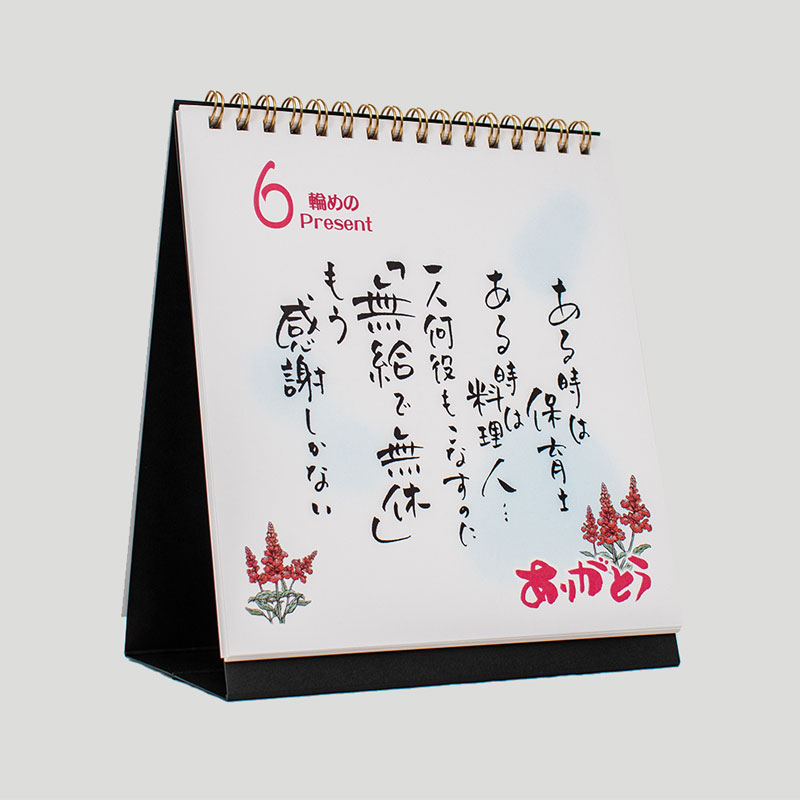 6輪めの
Present
ある時は
保育士
ある時は
料理人…
一人何役もこなすのに
「無給で無休」
もう
感謝しかない
ありがとう